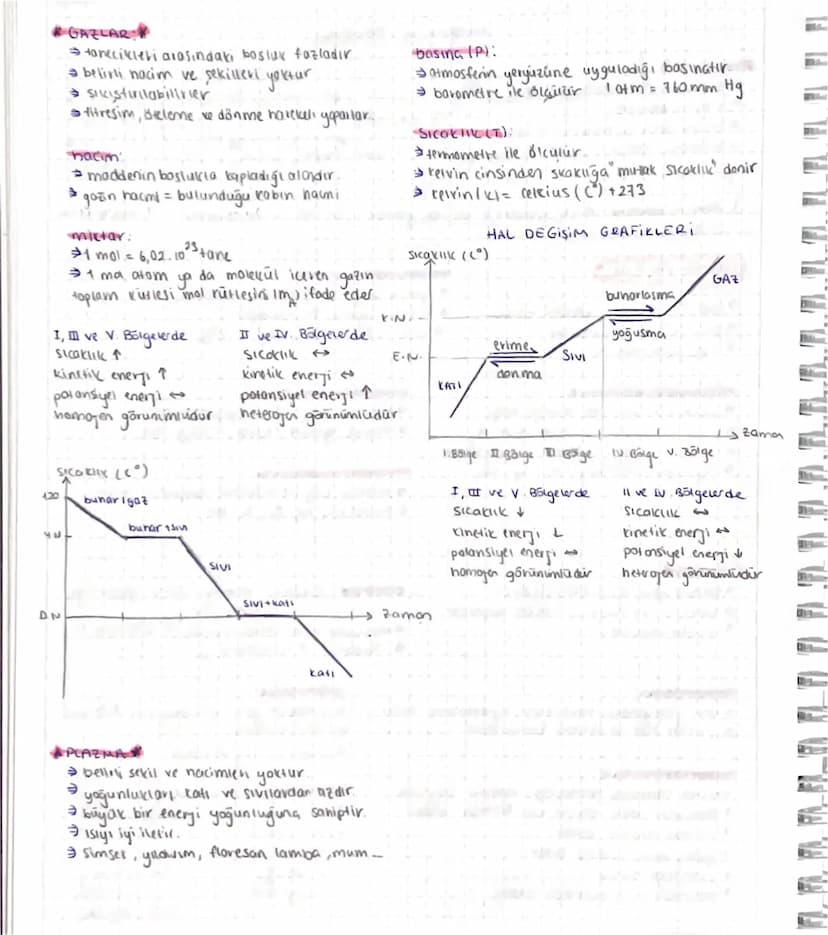 * GAZLAR *
→ tanecikleri arasındaki boşluk fazladır.
→ belirli hacim ve şekilleri yoktur
→ sıkıştırılabilirler
→ titreşim, öteleme ve dönme hareketi yaparlar.
hacim:
→ maddenin boşlukta kapladığı alandır.
→ gazın hacmi = bulunduğu kabın hacmi
miktar:
→ 1 mol = 6,02.10²³ tane
→ 1 mol atom ya da molekül içeren gazın
toplam kütlesi mol kütlesini (mA) ifade eder
basınç (P):
→ atmosferin yeryüzüne uyguladığı basınçtır.
→ barometre ile ölçülür 1 atm = 760 mm Hg
Sıcaklık (T):
→ termometre ile ölçülür.
→ kelvin cinsinden sıcaklığa "mutlak sıcaklık" denir
→ kelvin (K) = celcius (C°) + 273
HAL DEĞİŞİM GRAFİKLERİ
Sıcaklık (C°)
GAZ
buharlaşma
K.N.
yoğuşma
erime
SIVI
E.N.
donma
KATI
zaman
I. Bölge II Bölge III Bölge IV. Bölge V. Bölge
I, III ve V. Bölgelerde
sıcaklık ↑
kinetik enerji ↑
potansiyel enerji ↔
homojen görünümlüdür
II ve IV. Bölgelerde
sıcaklık ↔
kinetik enerji ↔
potansiyel enerji ↑
heterojen görünümlüdür
Sıcaklık (C°)
120
buhar/gaz
buhar+sıvı
Y.N
SIVI
sıvı+katı
D.N
zaman
katı
I, III ve V. Bölgelerde
sıcaklık ↓
kinetik enerji ↓
potansiyel enerji ↔
homojen görünümlüdür
II ve IV. Bölgelerde
sıcaklık ↔
kinetik enerji ↔
potansiyel enerji ↓
heterojen görünümlüdür
* PLAZMA *
→ belirli şekil ve hacimleri yoktur.
→ yoğunlukları katı ve sıvılardan azdır.
→ büyük bir enerji yoğunluğuna sahiptir.
→ ısıyı iyi iletir.
→ şimşek, yıldırım, floresan lamba, mum